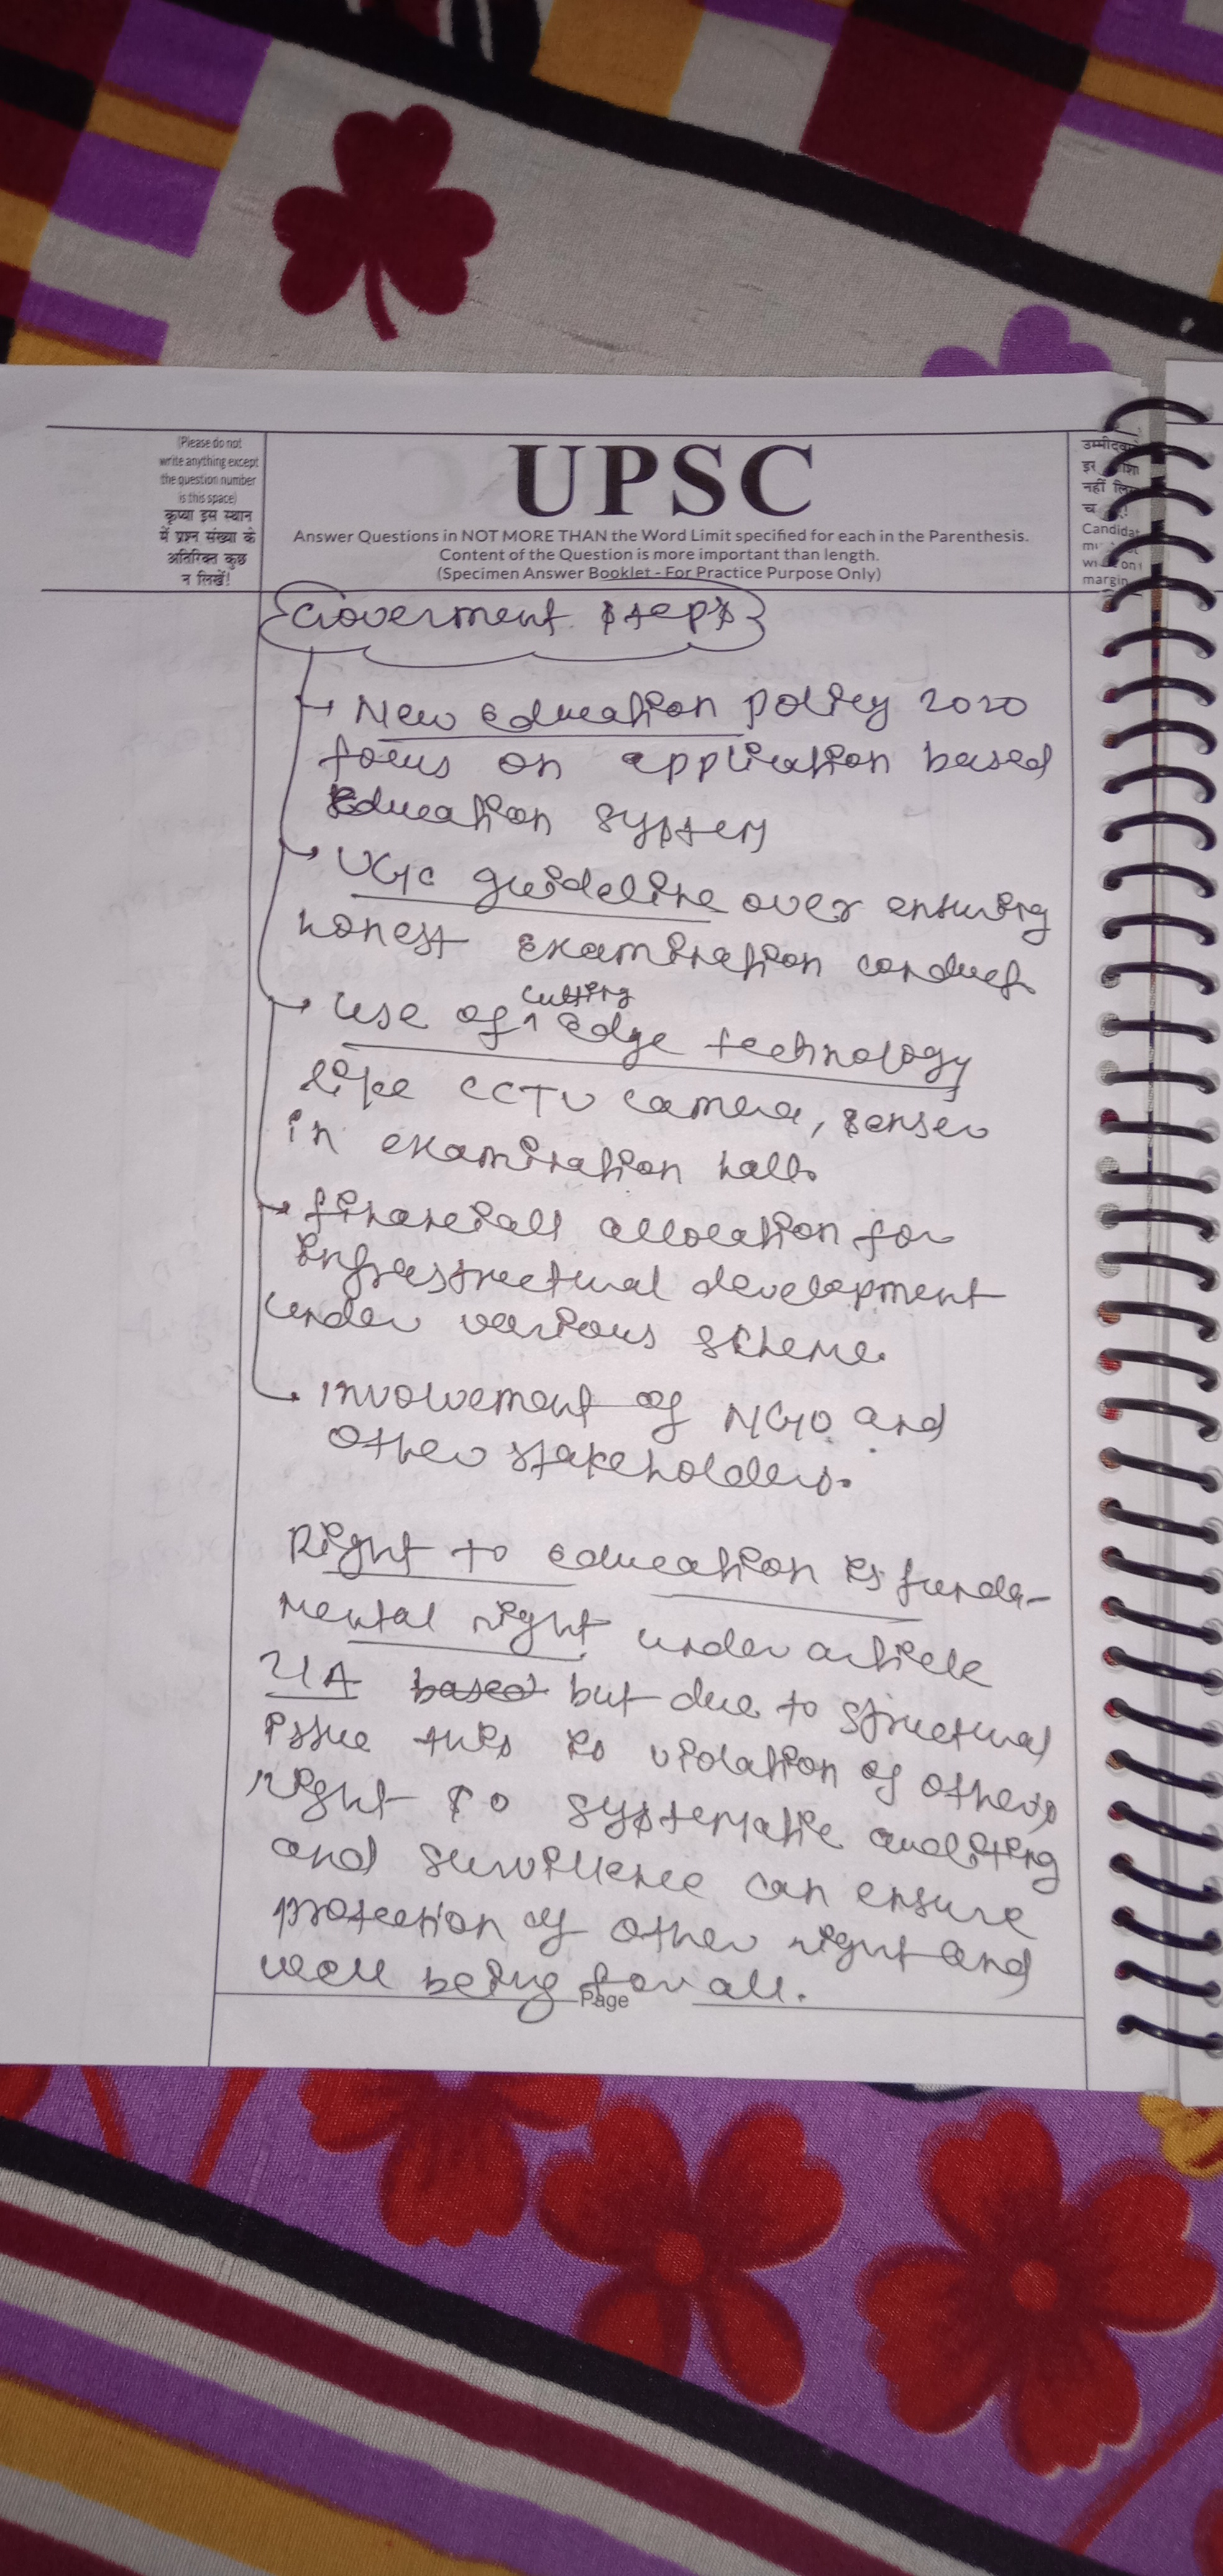 (Please do not
write anything except
the question number
is this space)
कृप्या इस स्थान
में प्रश्न संख्या के
अतिरिक्त कुछ
न लिखें!
UPSC
Answer Questions in NOT MORE THAN the Word Limit specified for each in the Parenthesis.
Content of the Question is more important than length.
(Specimen Answer Booklet - For Practice Purpose Only)
उम्मीदवा
नहीं लि
Candidat
margin
Goverment steps
New education policy 2020
focus on application based
Education system
UGC guideline over ensuring
honest examination conduct.
Use of cutting edge technology
like CCTV camera, sensor
in examination hall.
financiall allocation for
infrastructural development
under various scheme.
involvement of NGO and
other stakeholders.
Right to education is funda-
mental right under article
21A based but due to structural
issue this is violation of others
right so systematic auditing
and survillence can ensure
protection of other right and
well being for all.
Page